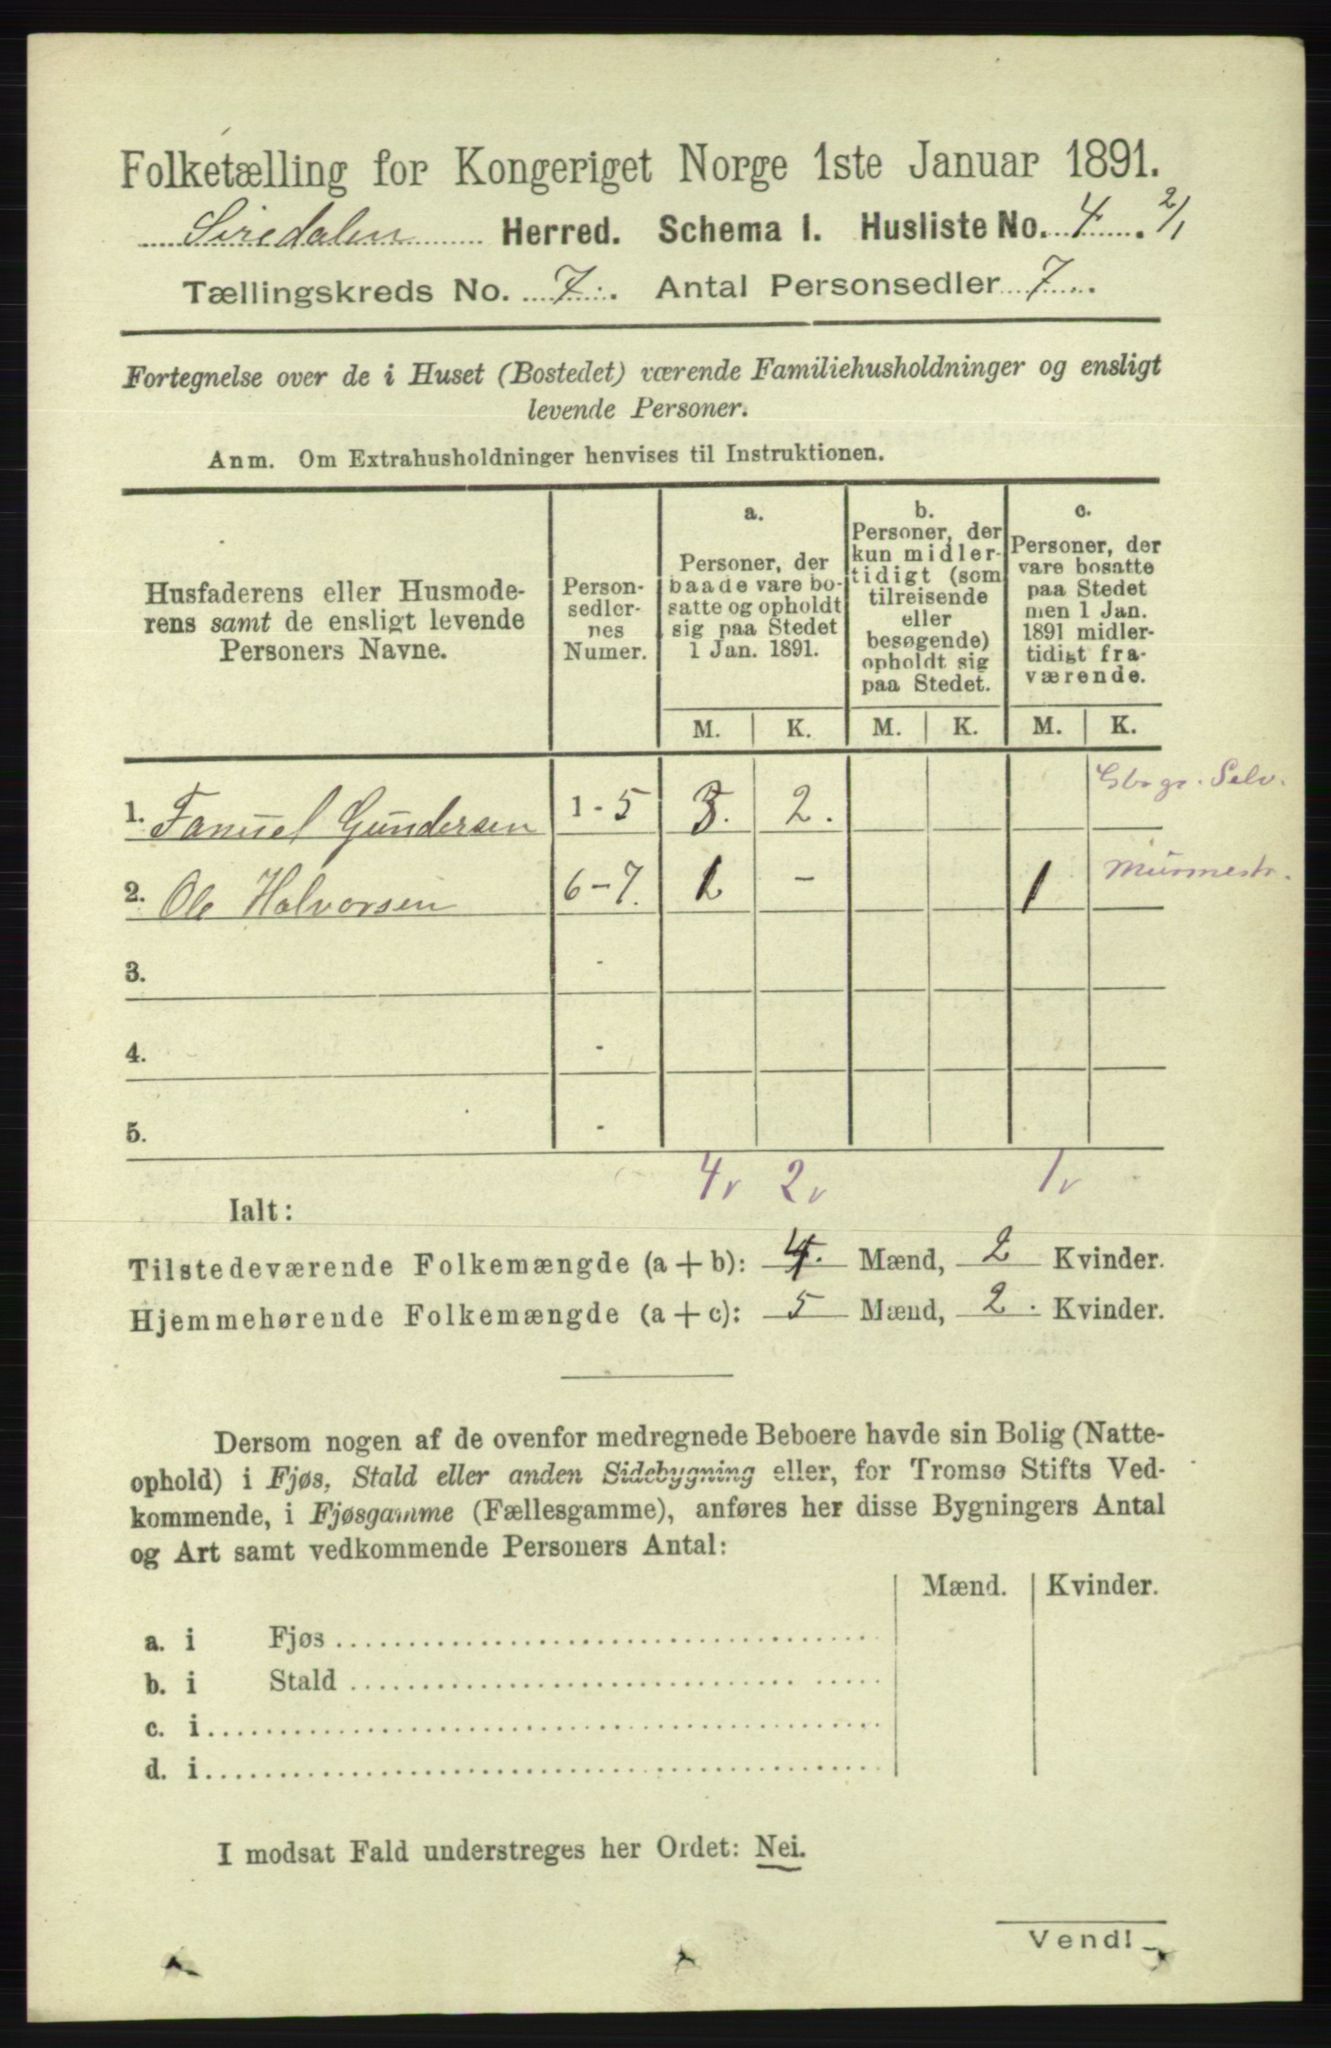 Folketælling for Kongeriget Norge 1ste Januar 1891.
Siredalen Herred. Schema 1. Husliste No. 4. 2/1
Tællingskreds No. 7. Antal Personsedler 7.
Fortegnelse over de i Huset (Bostedet) værende Familiehusholdninger og ensligt
levende Personer.
Anm. Om Extrahusholdninger henvises til Instruktionen.
Husfaderens eller Husmode-
rens samt de ensligt levende
Personers Navne.
Person-
sedler-
nes
Numer.
a.
Personer, der
baade vare bo-
satte og opholdt
sig paa Stedet
1 Jan. 1891.
b.
Personer, der
kun midler-
tidigt (som
tilreisende
eller
besøgende)
opholdt sig
paa Stedet.
c.
Personer, der
vare bosatte
paa Stedet
men 1 Jan.
1891 midler-
tidigt fra-
værende.
M. K. M. K. M. K.
1. Fanuel Gundersen 1 - 5 3. 2. Gbrgr. Selv.
2. Ole Halvorsen 6 - 7. 1 - 1 Murmestr.
3. -
4. -
5. -
4v 2v 1v
Ialt:
Tilstedeværende Folkemængde (a + b): 4. Mænd, 2 Kvinder.
Hjemmehørende Folkemængde (a + c): 5 Mænd, 2. Kvinder.
Dersom nogen af de ovenfor medregnede Beboere havde sin Bolig (Natte-
ophold) i Fjøs, Stald eller anden Sidebygning eller, for Tromsø Stifts Ved-
kommende, i Fjøsgamme (Fællesgamme), anføres her disse Bygningers Antal
og Art samt vedkommende Personers Antal:
Mænd. Kvinder.
a. i Fjøs
b. i Stald
c. i
d. i
I modsat Fald understreges her Ordet: Nei.
Vend!